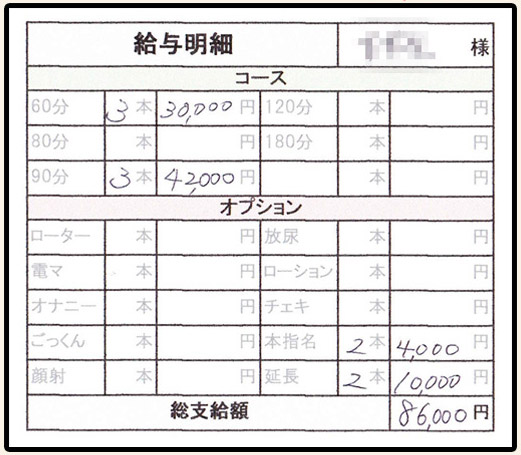 給与明細 様
コース
60分 3本 30,000円 120分 本 円
80分 本 円 180分 本 円
90分 3本 42,000円 本 円
オプション
ローター 本 円 放尿 本 円
電マ 本 円 ローション 本 円
オナニー 本 円 チェキ 本 円
ごっくん 本 円 本指名 2本 4,000円
顔射 本 円 延長 2本 10,000円
総支給額 86,000円